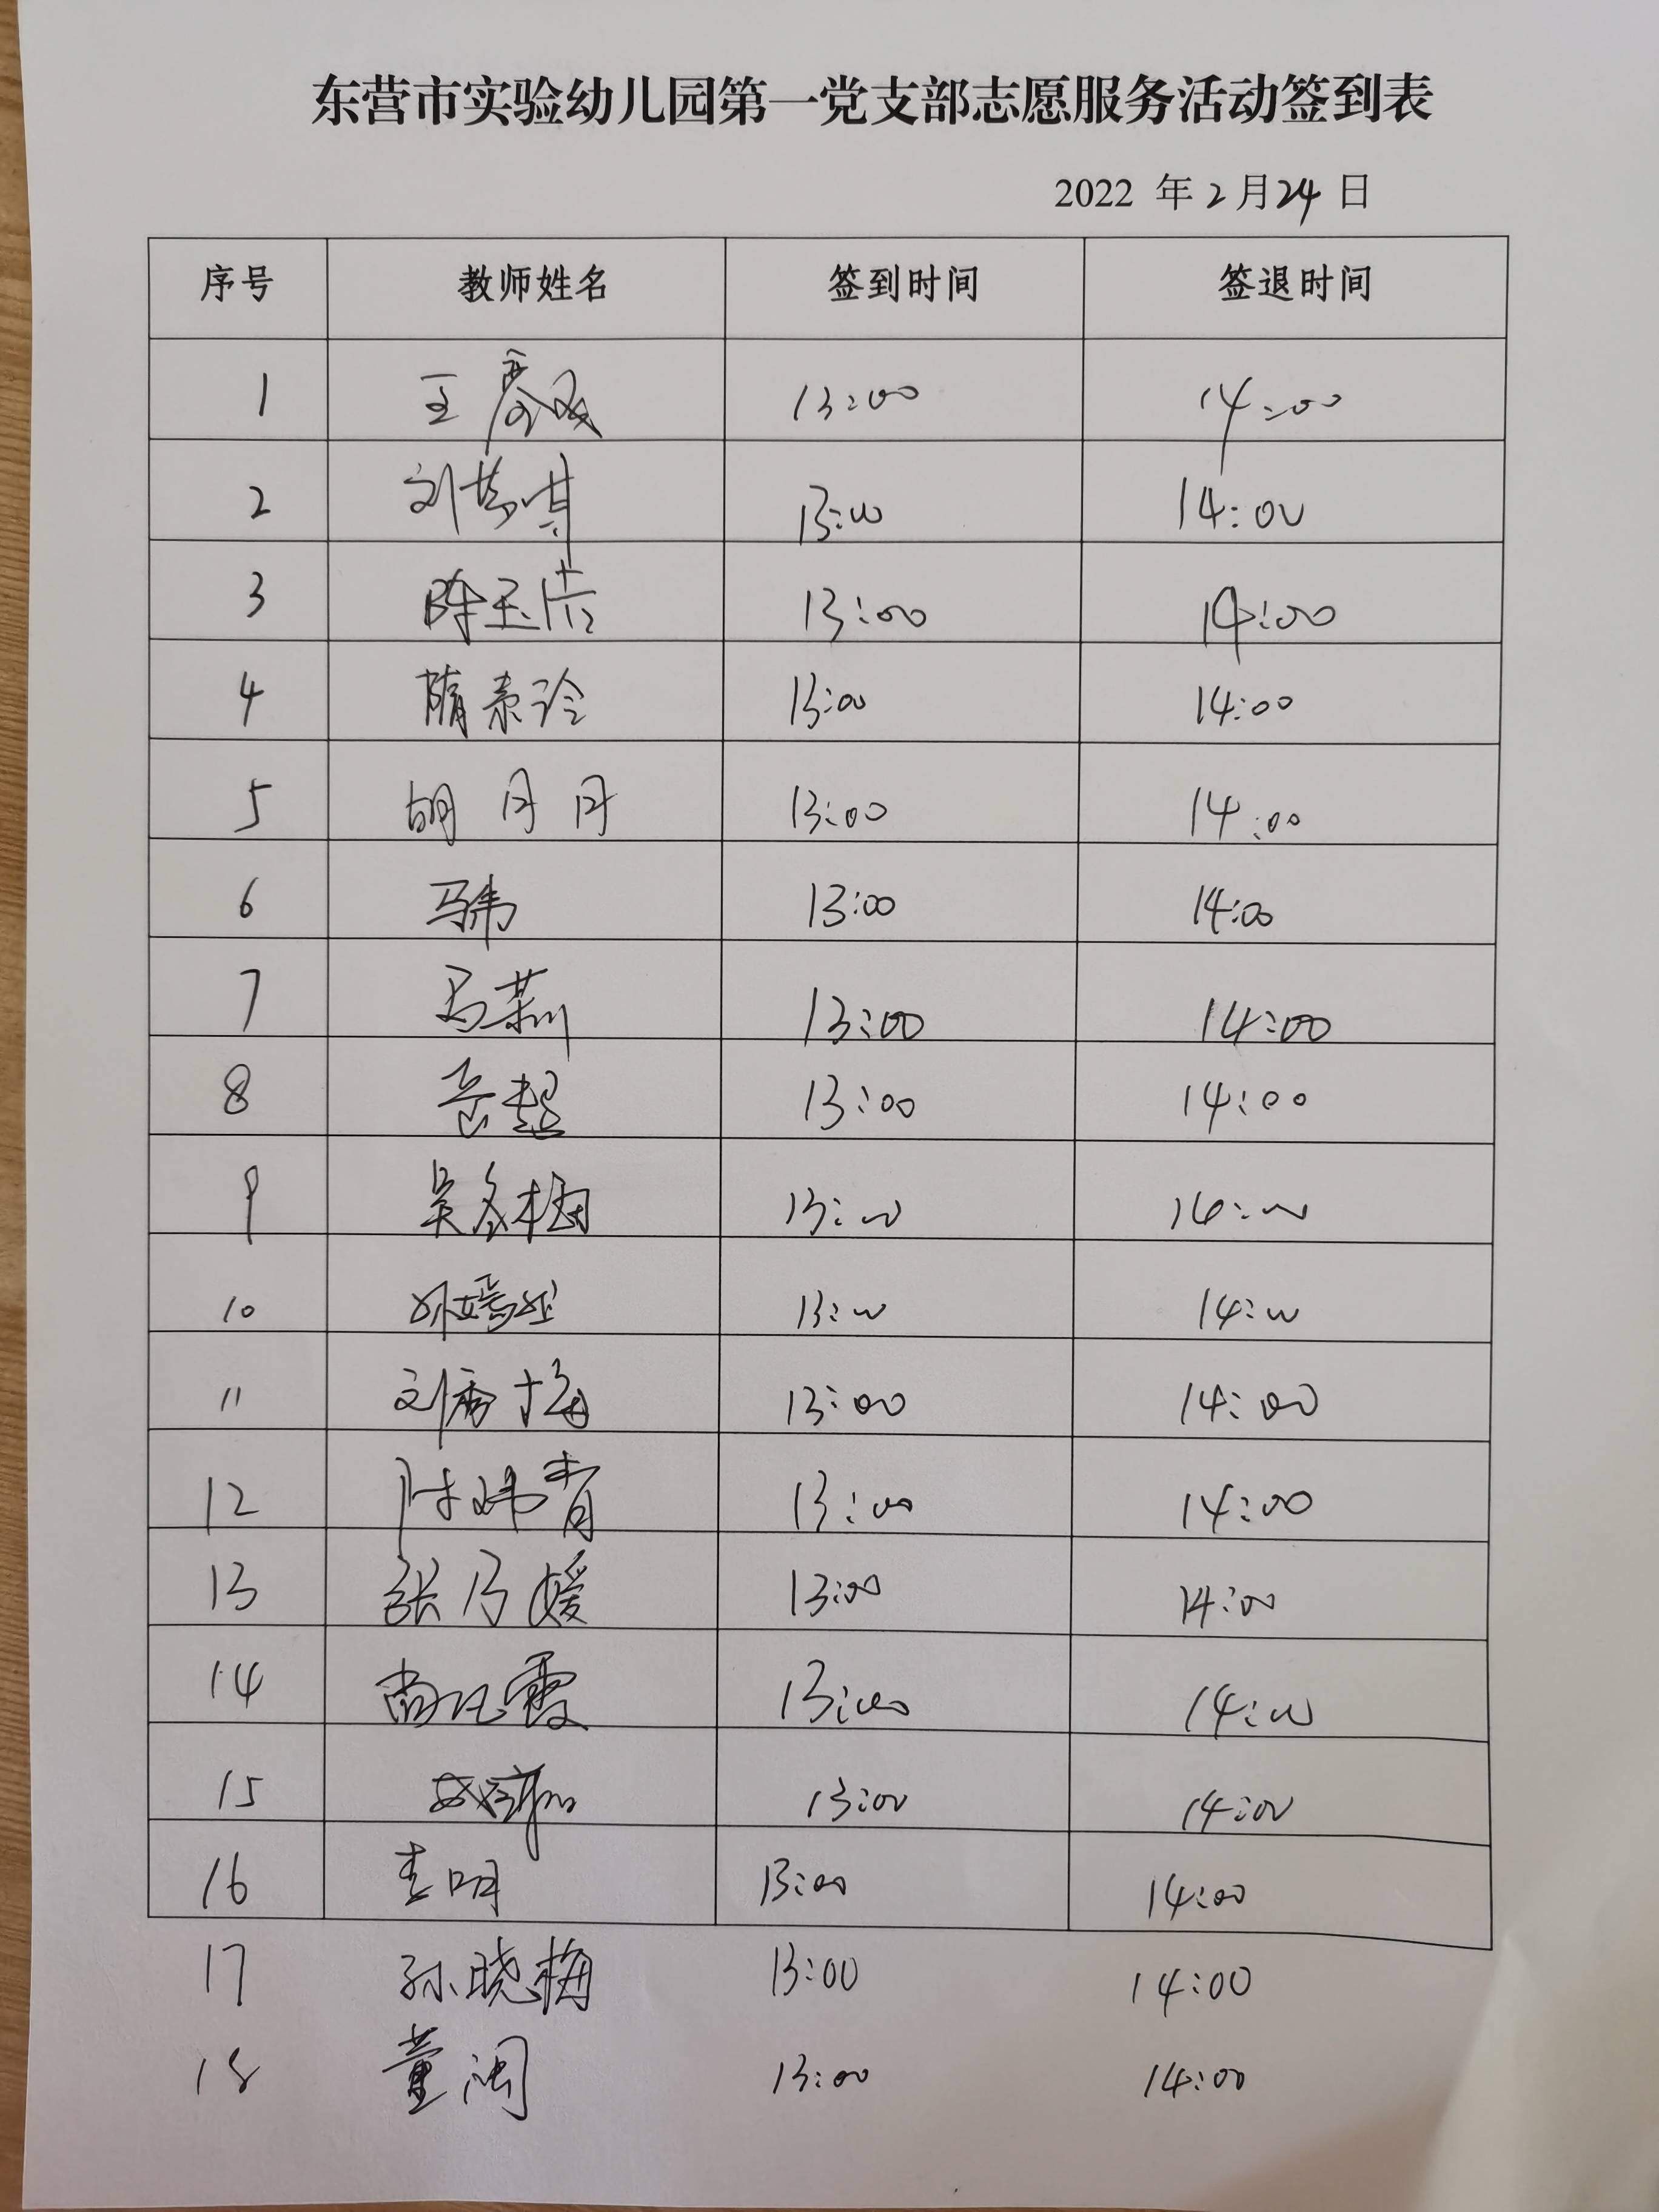 东营市实验幼儿园第一党支部志愿服务活动签到表
2022 年 2 月 24 日
序号 教师姓名 签到时间 签退时间
1 王 13:00 14:00
2 刘梦琪 13:00 14:00
3 陈玉洁 13:00 14:00
4 隋素玲 13:00 14:00
5 胡月月 13:00 14:00
6 马韦 13:00 14:00
7 马莉 13:00 14:00
8 岳超 13:00 14:00
9 吴冬梅 13:00 14:00
10 13:00 14:00
11 刘秀梅 13:00 14:00
12 陈炜青 13:00 14:00
13 张乃媛 13:00 14:00
14 尚 霞 13:00 14:00
15 13:00 14:00
16 李明 13:00 14:00
17 孙晓梅 13:00 14:00
18 董闽 13:00 14:00